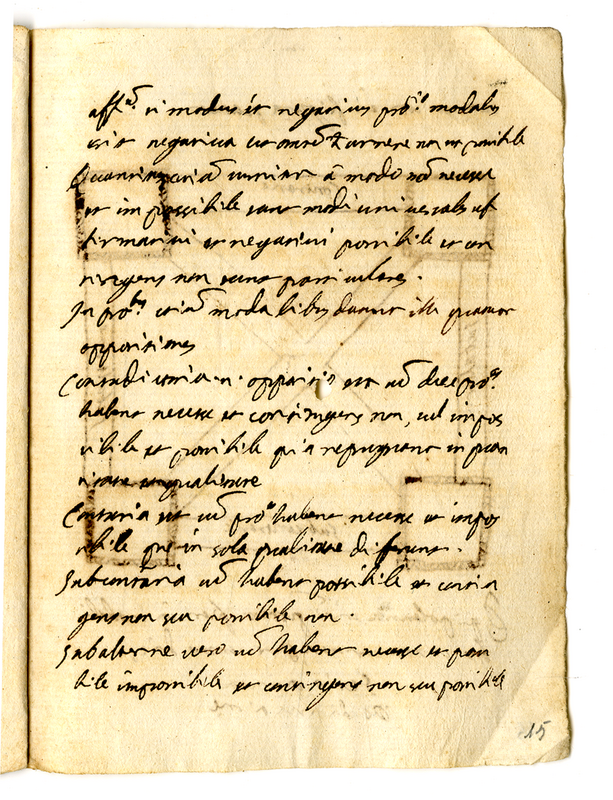 afft. si modus sit negativus pro. modalis
erit negativa ut omnem currere non est possibile
Quantitas etiam sumitur a modo nam necesse
et impossibile sunt modi universales af
firmativi et negativi possibile et con
tingens non sunt particulares.
In pro.bus etiam modalibus dantur ille quatuor
oppositiones
Contradictoria .n. oppositio est cum due pro.es
habent necesse et contingens non, vel impos
sibile et possibile quia repugnant in quan
titate et qualitate
Contraria est cum pro.es habent necesse et impos
sibile que in sola qualitate differunt.
Subcontraria cum habent possibile et contin
gens non seu possibile non.
Subalterne vero cum habent necesse et possi
bile impossibile et contingens non seu possibile
15